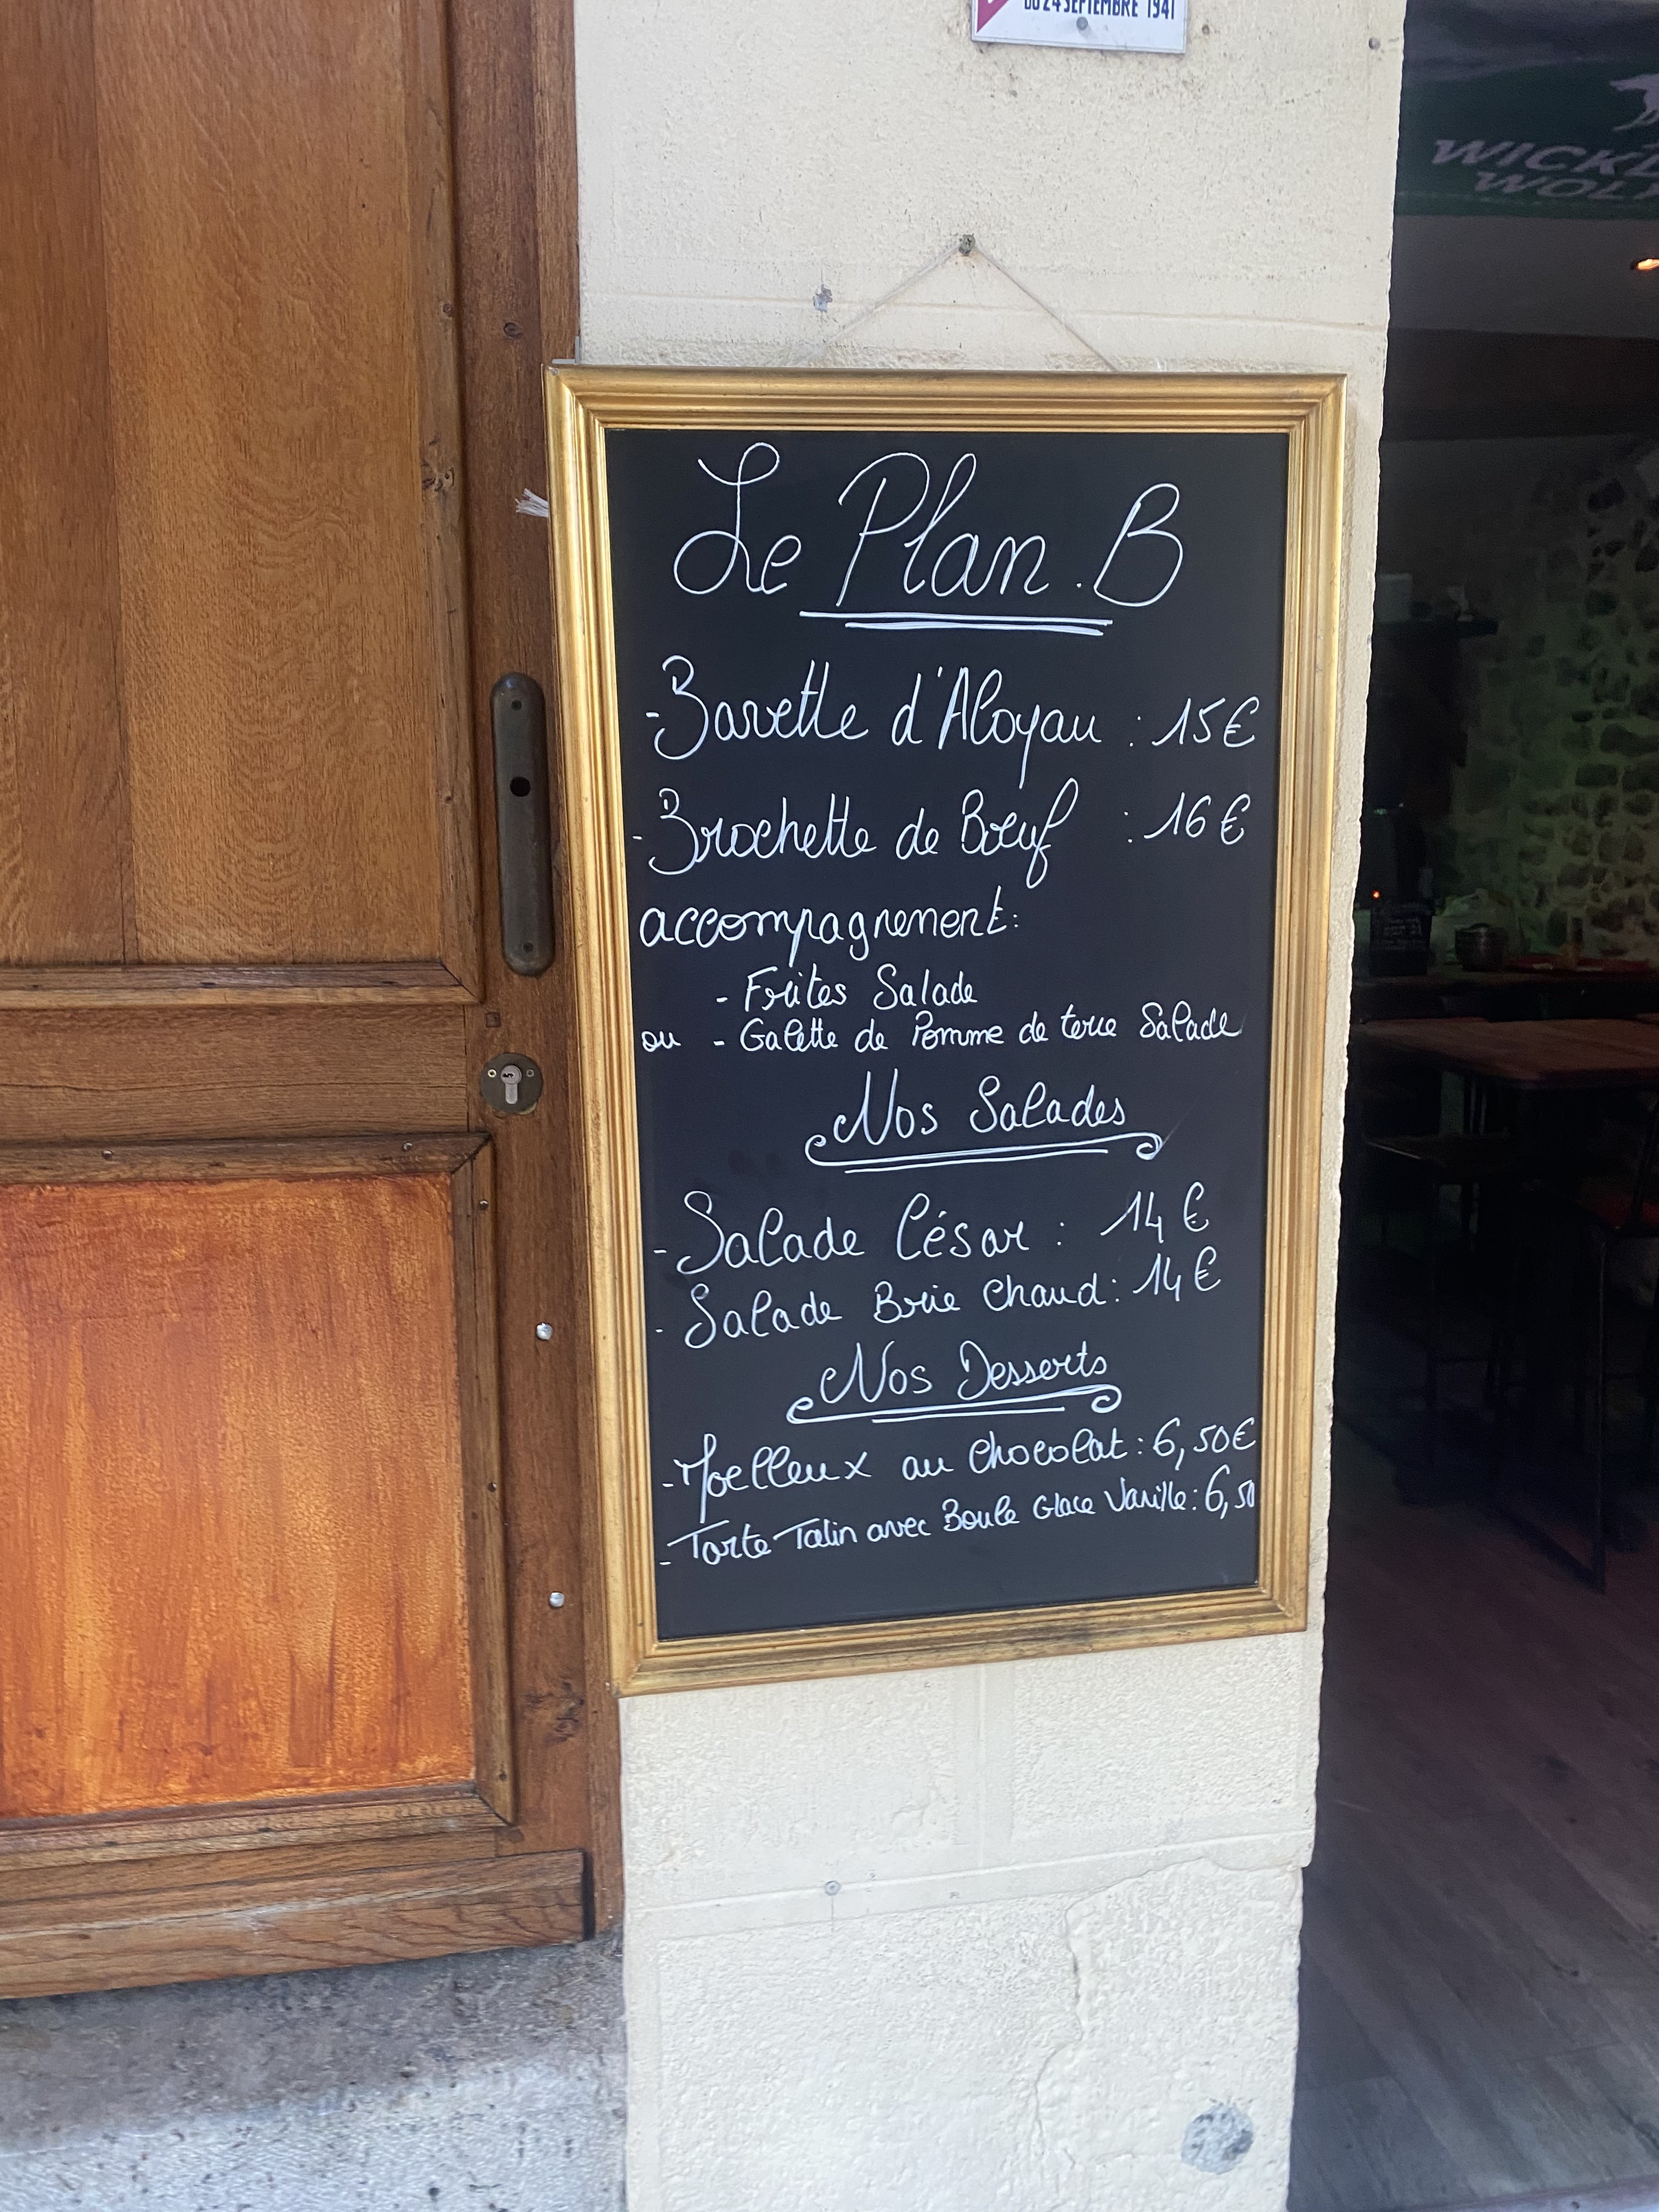 DU 24 SEPTEMBRE 1941
Le Plan.B
- Bavette d'Aloyau : 15€
- Brochette de Bœuf : 16€
accompagnement:
- Frites Salade
ou - Galette de Pomme de terre Salade
Nos Salades
- Salade César : 14€
- Salade Brie Chaud : 14€
Nos Desserts
- Moelleux au Chocolat : 6,50€
- Tarte Tatin avec Boule Glace Vanille : 6,50